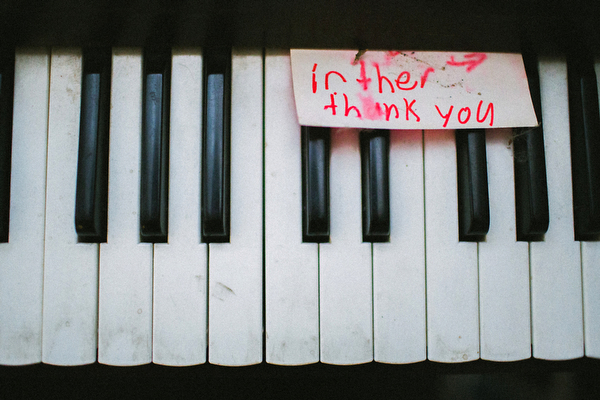 in ther →
thank you